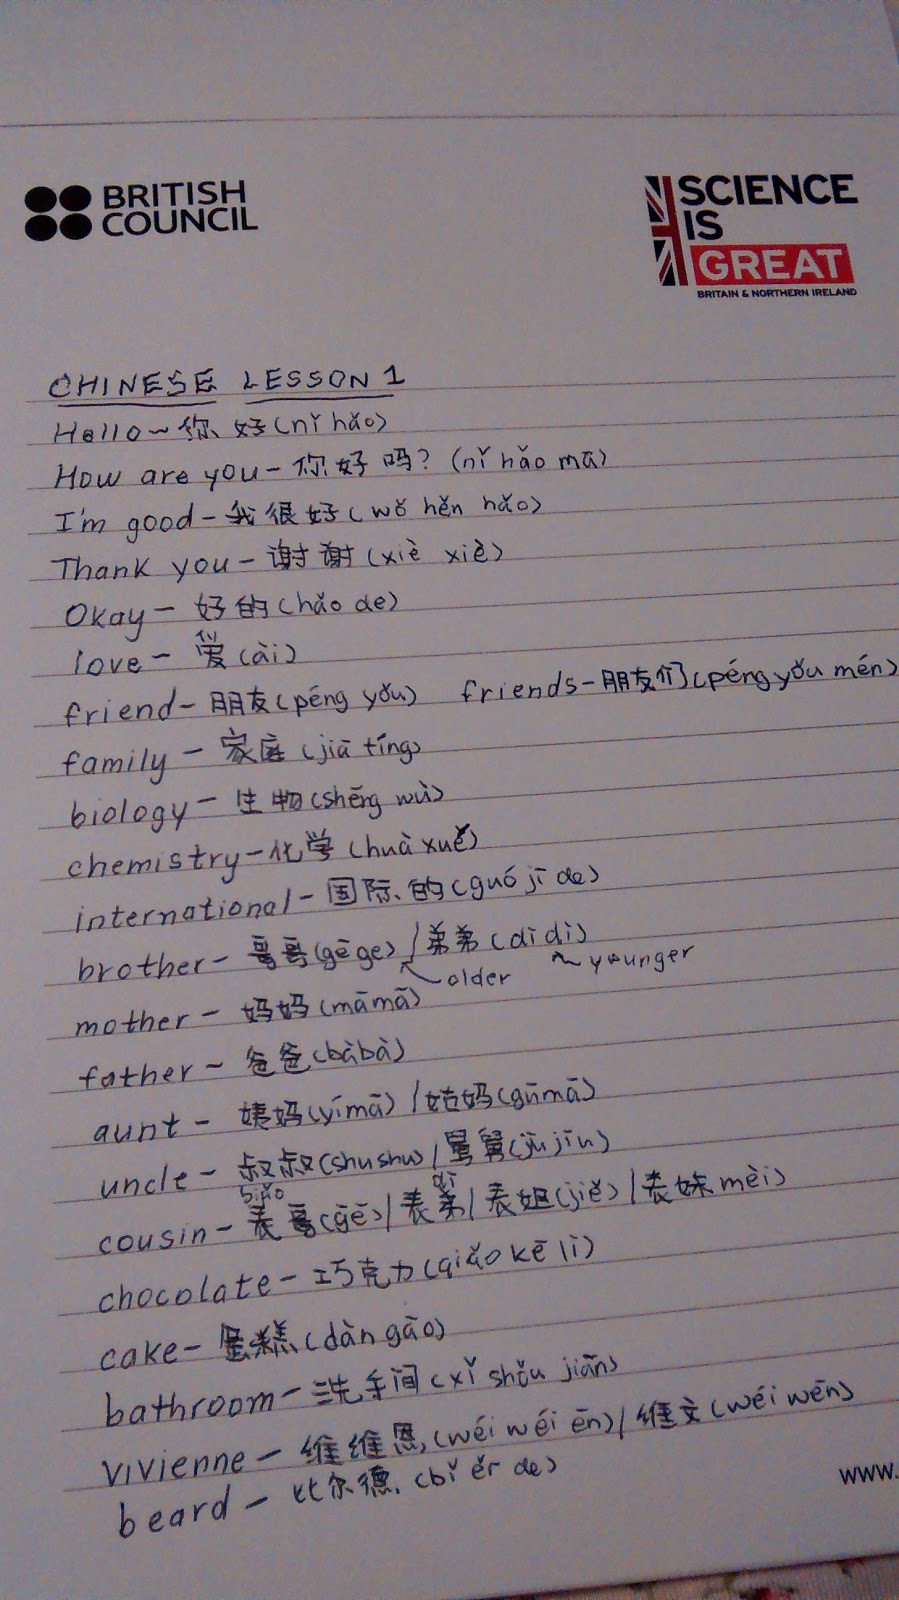 BRITISH
COUNCIL
SCIENCE
IS
GREAT
BRITAIN & NORTHERN IRELAND
CHINESE LESSON 1
Hello ~ 你好 (nǐ hǎo)
How are you - 你好吗? (nǐ hǎo mā)
I'm good - 我很好 (wǒ hěn hǎo)
Thank you - 谢谢 (xiè xiè)
Okay - 好的 (hǎo de)
love - 爱 (ài)
friend - 朋友 (péng yǒu) friends - 朋友们 (péng yǒu mén)
family - 家庭 (jiā tíng)
biology - 生物 (shēng wù)
chemistry - 化学 (huà xué)
international - 国际的 (guó jì de)
brother - 哥哥 (gē ge) / 弟弟 (dì dì)
older younger
mother - 妈妈 (māmā)
father - 爸爸 (bàbà)
aunt - 姨妈 (yímā) / 姑妈 (gūmā)
uncle - 叔叔 (shushu) / 舅舅 (jìujìu)
biǎo dì
cousin - 表哥 (gē) / 表弟 / 表姐 (jiě) / 表妹 mèi)
chocolate - 巧克力 (qiǎo kē lì)
cake - 蛋糕 (dàn gāo)
bathroom - 洗手间 (xǐ shǒu jiān)
vivienne - 维维恩 (wéi wéi ēn) / 维文 (wéi wēn)
beard - 比尔德 (bǐ ěr de)
www.